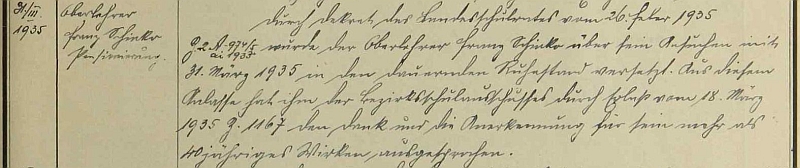 31./III.
1935
Oberlehrer
Franz Schinko
Pensionierung.
Durch Dekret des Landesschulrates vom 26. Feber 1935
Z. 2 A-974/5 wurde der Oberlehrer Franz Schinko über sein Ansuchen mit
ai 1933
31. März 1935 in den dauernden Ruhestand versetzt. Aus diesem
Anlasse hat ihm der Bezirksschulausschusses durch Erlaß vom 18. März
1935 Z. 1167 den Dank und die Anerkennung für sein mehr als
40 jähriges Wirken ausgesprochen.